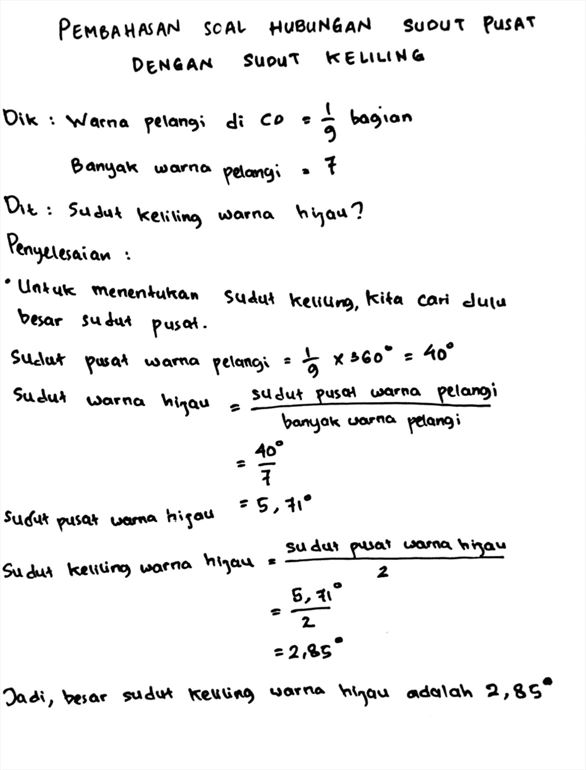 PEMBAHASAN SOAL HUBUNGAN SUDUT PUSAT
DENGAN SUDUT KELILING
Dik : Warna pelangi di CD = 1/9 bagian
Banyak warna pelangi = 7
Dit : Sudut keliling warna hijau?
Penyelesaian :
• Untuk menentukan sudut keliling, kita cari dulu
besar sudut pusat.
Sudut pusat warna pelangi = 1/9 x 360° = 40°
Sudut warna hijau = sudut pusat warna pelangi / banyak warna pelangi
= 40°/7
Sudut pusat warna hijau = 5,71°
Sudut keliling warna hijau = sudut pusat warna hijau / 2
= 5,71°/2
= 2,85°
Jadi, besar sudut keliling warna hijau adalah 2,85°